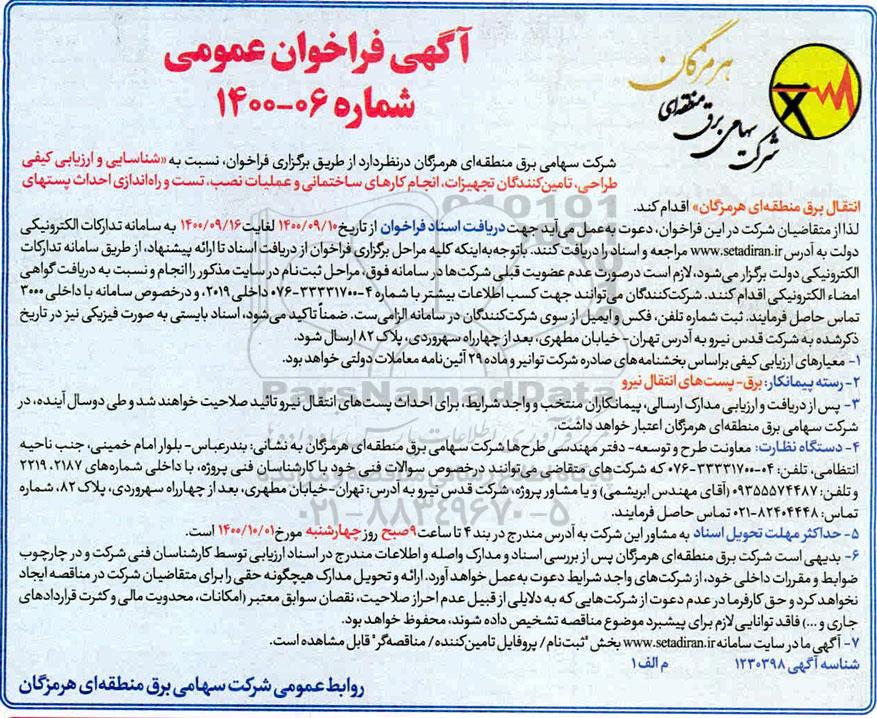 آگهی فراخوان عمومی
شماره ۰۶-۱۴۰۰
هرمزگان
شرکت سهامی برق منطقه‌ای
شرکت سهامی برق منطقه‌ای هرمزگان درنظردارد از طریق برگزاری فراخوان، نسبت به «شناسایی و ارزیابی کیفی
طراحی، تامین‌کنندگان تجهیزات، انجام کارهای ساختمانی و عملیات نصب، تست و راه‌اندازی احداث پستهای
انتقال برق منطقه‌ای هرمزگان» اقدام کند.
لذا از متقاضیان شرکت در این فراخوان، دعوت به‌عمل می‌آید جهت دریافت اسناد فراخوان از تاریخ ۱۴۰۰/۰۹/۱۰ لغایت ۱۴۰۰/۰۹/۱۶ به سامانه تدارکات الکترونیکی
دولت به آدرس www.setadiran.ir مراجعه و اسناد را دریافت کنند. باتوجه‌به‌اینکه کلیه مراحل برگزاری فراخوان از دریافت اسناد تا ارائه پیشنهاد، از طریق سامانه تدارکات
الکترونیکی دولت برگزار می‌شود، لازم است درصورت عدم عضویت قبلی شرکت‌ها در سامانه فوق، مراحل ثبت‌نام در سایت مذکور را انجام و نسبت به دریافت گواهی
امضاء الکترونیکی اقدام کنند. شرکت‌کنندگان می‌توانند جهت کسب اطلاعات بیشتر با شماره ۴-۳۳۳۳۱۷۰۰-۰۷۶ داخلی ۲۰۱۹، و درخصوص سامانه با داخلی ۳۰۰۰
تماس حاصل فرمایند. ثبت شماره تلفن، فکس و ایمیل از سوی شرکت‌کنندگان در سامانه الزامی‌ست. ضمناً تاکید می‌شود، اسناد بایستی به صورت فیزیکی نیز در تاریخ
ذکرشده به شرکت قدس نیرو به آدرس تهران- خیابان مطهری، بعد از چهارراه سهروردی، پلاک ۸۲ ارسال شود.
۱- معیارهای ارزیابی کیفی براساس بخشنامه‌های صادره شرکت توانیر و ماده ۲۹ آئین‌نامه معاملات دولتی خواهد بود.
۲- رسته پیمانکار: برق- پست‌های انتقال نیرو
۳- پس از دریافت و ارزیابی مدارک ارسالی، پیمانکاران منتخب و واجد شرایط، برای احداث پست‌های انتقال نیرو تائید صلاحیت خواهند شد و طی دوسال آینده، در
شرکت سهامی برق منطقه‌ای هرمزگان اعتبار خواهد داشت.
۴- دستگاه نظارت: معاونت طرح و توسعه- دفتر مهندسی طرح‌ها شرکت سهامی برق منطقه‌ای هرمزگان به نشانی: بندرعباس- بلوار امام خمینی، جنب ناحیه
انتظامی، تلفن: ۰۴-۳۳۳۳۱۷۰۰-۰۷۶ که شرکت‌های متقاضی می‌توانند درخصوص سوالات فنی خود با کارشناسان فنی پروژه، با داخلی شماره‌های ۲۱۸۷، ۲۲۱۹
و تلفن: ۰۹۳۵۵۵۷۴۴۸۷ (آقای مهندس ابریشمی) و یا مشاور پروژه، شرکت قدس نیرو به آدرس: تهران-خیابان مطهری، بعد از چهارراه سهروردی، پلاک ۸۲، شماره
تماس: ۸۲۴۰۴۴۴۸-۰۲۱ تماس حاصل فرمایند.
۵- حداکثر مهلت تحویل اسناد به مشاور این شرکت به آدرس مندرج در بند ۴ تا ساعت ۹ صبح روز چهارشنبه مورخ ۱۴۰۰/۱۰/۰۱ است.
۶- بدیهی است شرکت برق منطقه‌ای هرمزگان پس از بررسی اسناد و مدارک واصله و اطلاعات مندرج در اسناد ارزیابی توسط کارشناسان فنی شرکت و در چارچوب
ضوابط و مقررات داخلی خود، از شرکت‌های واجد شرایط دعوت به‌عمل خواهد آورد. ارائه و تحویل مدارک هیچگونه حقی را برای متقاضیان شرکت در مناقصه ایجاد
نخواهد کرد و حق کارفرما در عدم دعوت از شرکت‌هایی که به دلایلی از قبیل عدم احراز صلاحیت، نقصان سوابق معتبر (امکانات، محدویت مالی و کثرت قراردادهای
جاری و ...) فاقد توانایی لازم برای پیشبرد موضوع مناقصه تشخیص داده شوند، محفوظ خواهد بود.
۷- آگهی ما در سایت سامانه www.setadiran.ir بخش "ثبت‌نام/ پروفایل تامین‌کننده/ مناقصه‌گر" قابل مشاهده است.
شناسه آگهی ۱۲۳۰۳۹۸ م الف ۱
روابط عمومی شرکت سهامی برق منطقه‌ای هرمزگان
ParsNamadData
۰۲۱-۸۸۳۴۹۶۷۰-۵